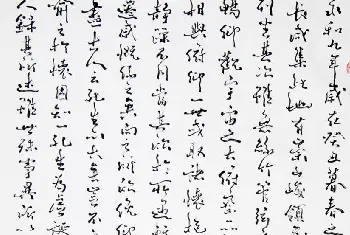 永和九年歲在癸丑暮春之
長咸集此地有崇山峻領
列坐其次雖無絲竹管絃
暢仰觀宇宙之大俯察品
相與俯仰一世或取諸懷抱
靜躁不同當其欣於所遇
遷感慨係之矣向之所欣俛仰
盡古人云死生亦大矣豈不
喻之於懷固知一死生為虛誕
人錄其所述雖世殊事異所以